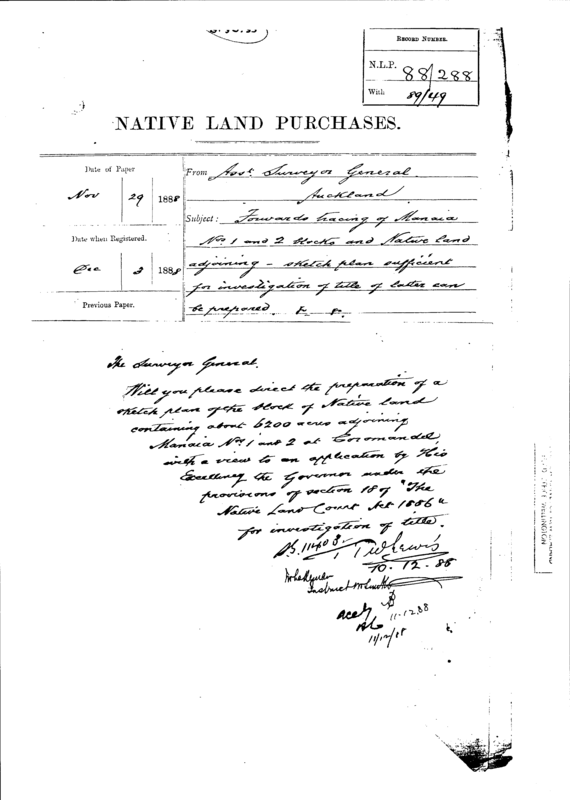 RECORD NUMBER.
N.L.P. 88/288
With 89/49
NATIVE LAND PURCHASES.
Date of Paper
Nov 29 1888
Date when Registered.
Dec 3 1888
Previous Paper.
From Asst. Surveyor General
Auckland
Subject: Forwards tracing of Manaia
Nos 1 and 2 blocks and Native land
adjoining - sketch plan sufficient
for investigation of title of latter can
be prepared.
The Surveyor General.
Will you please direct the preparation of a
sketch plan of the block of Native land
containing about 6200 acres adjoining
Manaia Nos. 1 and 2 at Coromandel,
with a view to an application by His
Excellency the Governor under the
provisions of section 18 of "The
Native Land Court Act 1886"
for investigation of title.
T W Lewis
10.12.88
Instruct
11.12.88
11/12/88